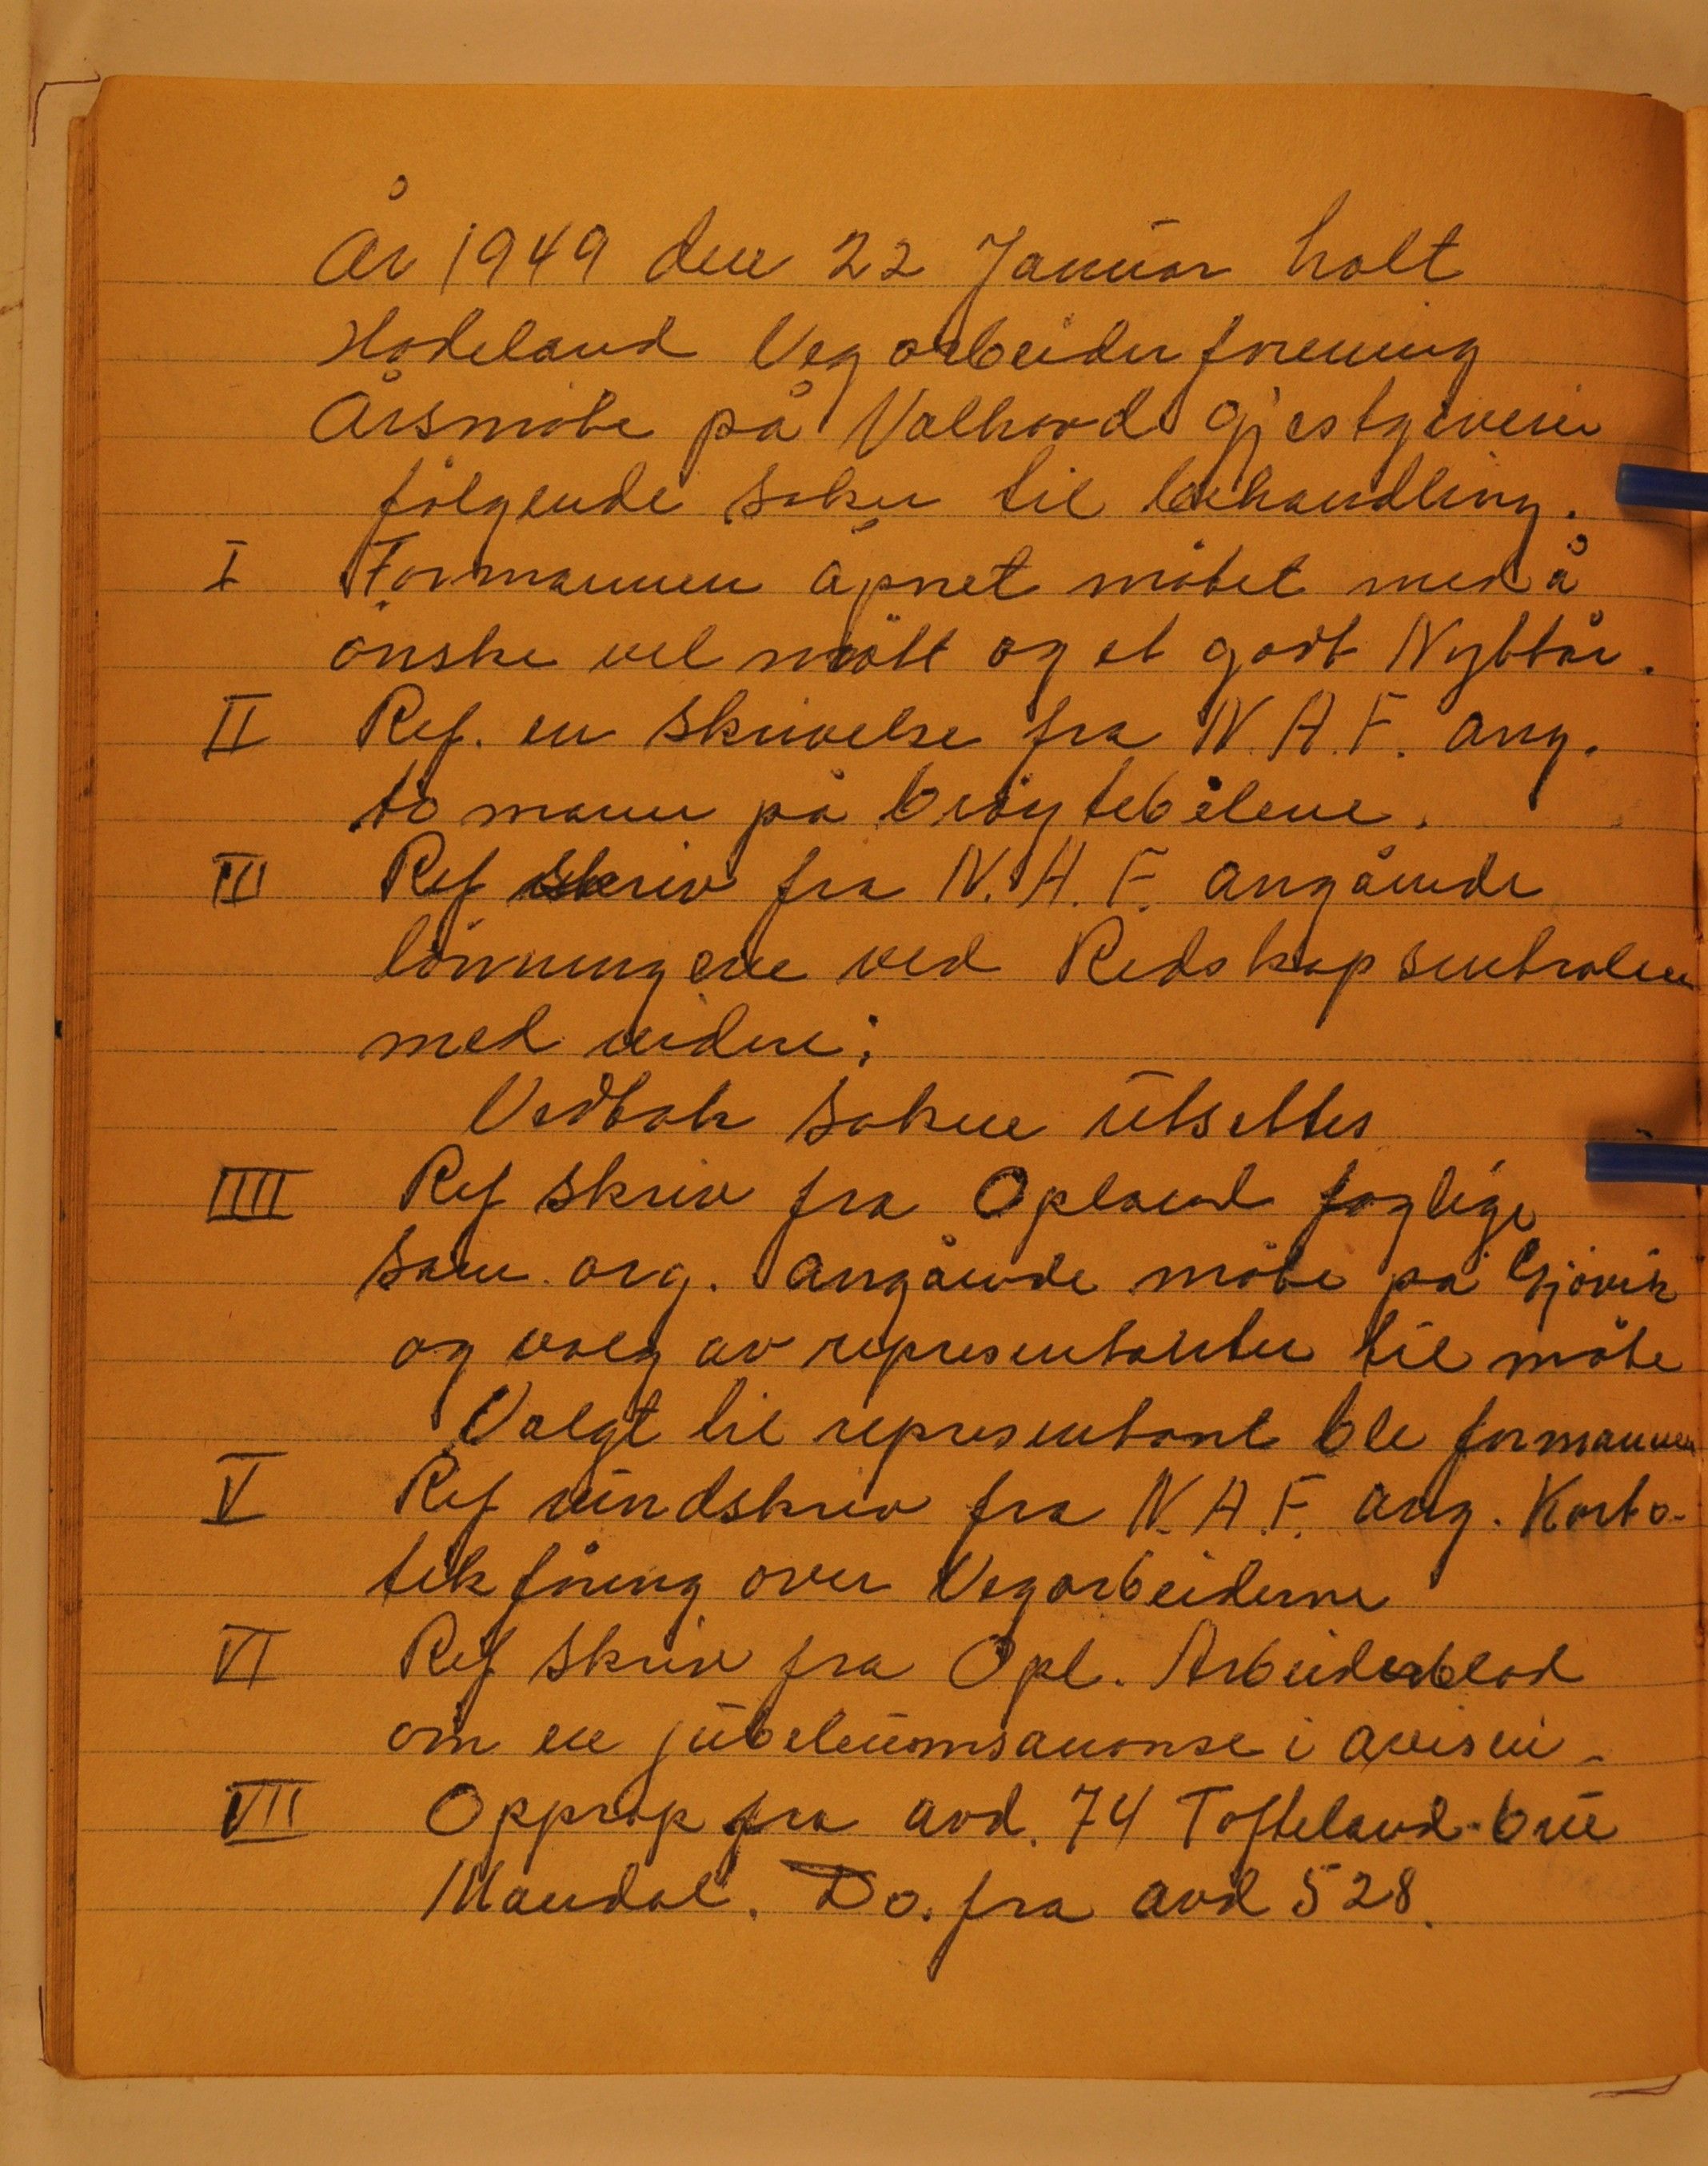 År 1949 den 22 Januar holt
Hadeland Vegarbeiderforening
Årsmöte på Valhovd Gjestgiveri
fölgende saker til behandling.
I Formannen åpnet mötet med å
önske vel mött og et godt Nyttår.
II Ref. en skrivelse fra N.A.F. ang.
to mann på bröytebilene.
III Ref skriv fra N.A.F. angående
lönningene ved Redskapsentralen
med videre;
Vedtak saken utsettes
IIII Ref skriv fra Opland faglige
sam. org. angående möte på Gjövik
og valg av representanter til möte
Valgt til representant ble formannen
V Ref rundskriv fra N.A.F. ang. Karto-
tekföring over Vegarbeiderne
VI Ref skriv fra Opl. Arbeiderblad
om en jubeleumsanonse i avisen.
VII Opprop fra avd. 74 Tofteland-bru
Mandal. Do. fra avd 528.